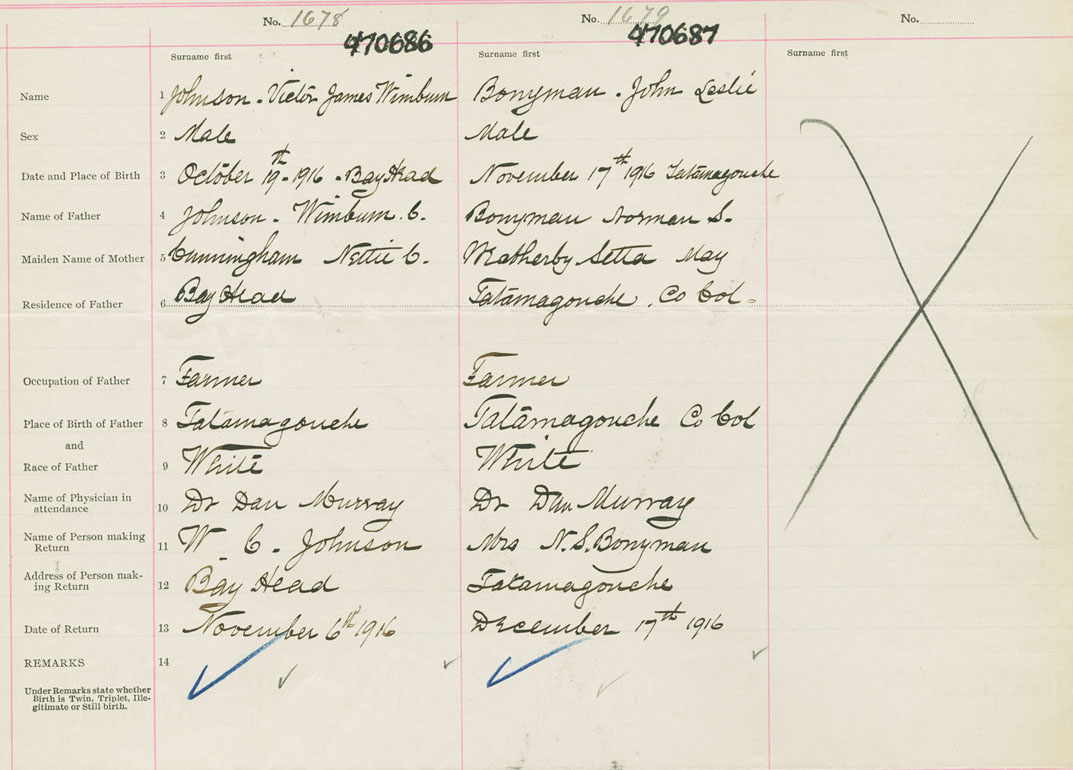 No. 1678 No. 1679 No.
470686 470687
Surname first Surname first Surname first
Name 1 Johnson. Victor James Wimburn Bonyman. John Leslie
Sex 2 Male Male
Date and Place of Birth 3 October 19th 1916. Bay Head November 17th 1916 Tatamagouche
Name of Father 4 Johnson. Wimburn. C. Bonyman Norman S.
Maiden Name of Mother 5 Cunningham Nettie C. Matherby Setta May
Residence of Father 6 Bay Head Tatamagouche. Co Col.
Occupation of Father 7 Farmer Farmer
Place of Birth of Father 8 Tatamagouche Tatamagouche Co Col
and
Race of Father 9 White White
Name of Physician in
attendance 10 Dr Dan Murray Dr Dan Murray
Name of Person making
Return 11 W. C. Johnson Mrs N. S. Bonyman
Address of Person mak-
ing Return 12 Bay Head Tatamagouche
Date of Return 13 November 6th 1916 December 17th 1916
REMARKS 14
Under Remarks state whether
Birth is Twin, Triplet, Ille-
gitimate or Still birth.